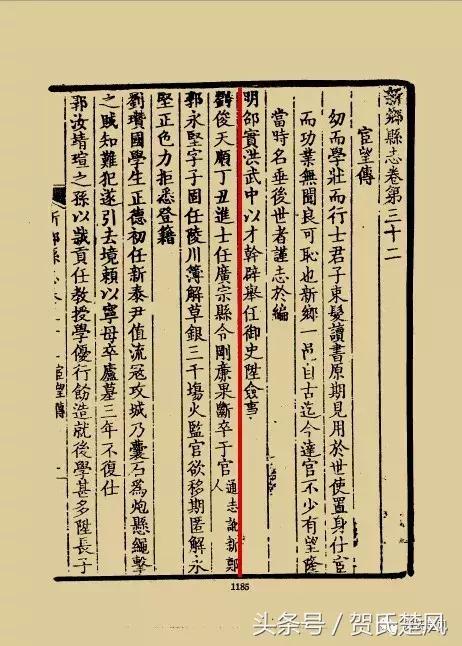 新鄉縣志卷第三十二
宦望傳
幼而學壯而行士君子束髮讀書原期見用於世使置身仕宦
而功業無聞良可恥也新鄉一邑自古迄今達官不少有望隆
當時名垂後世者謹志於編
明邵實洪武中以才幹辟舉任御史陞僉事
劉俊天順丁丑進士任廣宗縣令剛廉果斷卒于官通志訛新鄭人
郭永堅字子固任陵川簿解草銀三千塲火監官欲移期匿解永
堅正色力拒悉登籍
劉瓚國學生正德初任新泰尹值流寇攻城乃囊石為炮懸繩擊
之賊知難犯遂引去境賴以寧母卒廬墓三年不復仕
郭汝靖瑄之孫以歲貢任教授學優行飭造就後學甚多陞長子
新鄉縣志
宦望傳
1185
头条号 / 贺氏楚风